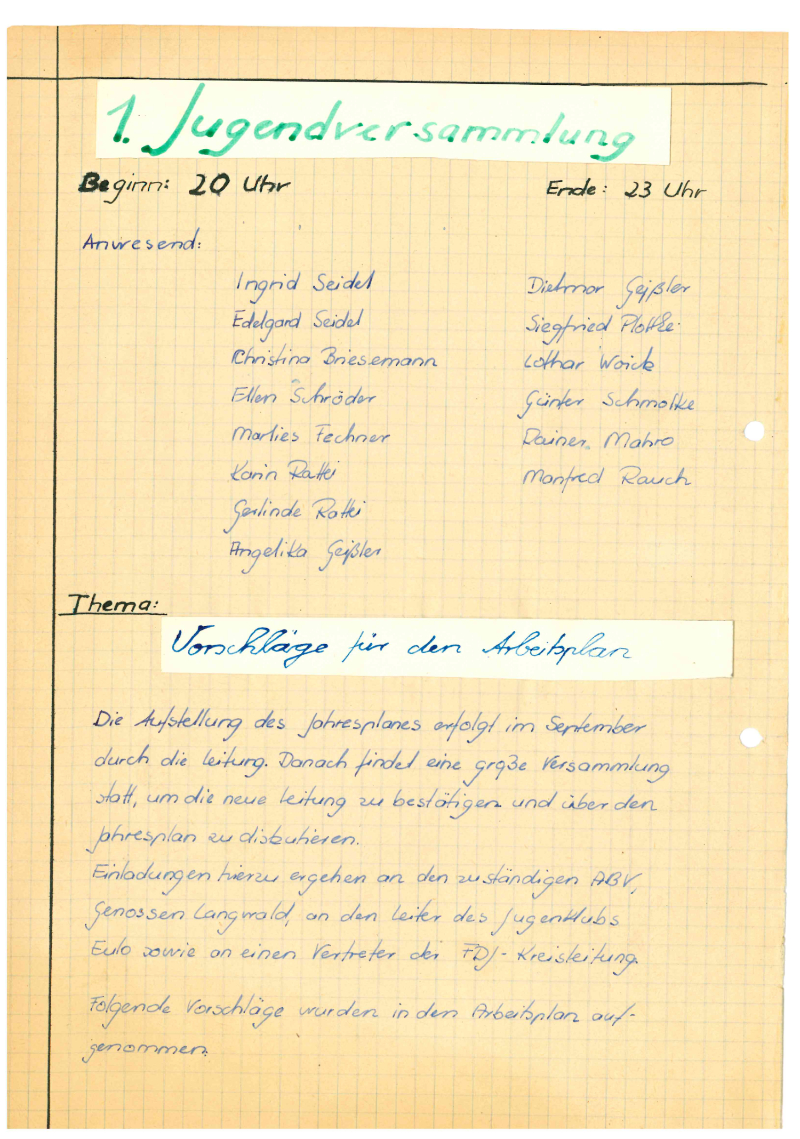 1. Jugendversammlung
Beginn: 20 Uhr Ende: 23 Uhr
Anwesend:
Ingrid Seidel Dietmar Geißler
Edelgard Seidel Siegfried Plottke
Christina Briesemann Lothar Woick
Ellen Schröder Günter Schmoltke
Marlies Fechner Rainer Mahro
Karin Rattei Manfred Rauch
Gerlinde Rattei
Angelika Geißler
Thema:
Vorschläge für den Arbeitsplan
Die Aufstellung des Jahresplanes erfolgt im September
durch die Leitung. Danach findet eine große Versammlung
statt, um die neue Leitung zu bestätigen und über den
Jahresplan zu diskutieren.
Einladungen hierzu ergehen an den zuständigen ABV,
Genossen Langwald, an den Leiter des Jugenklubs
Eulo sowie an einen Vertreter der FDJ-Kreisleitung.
Folgende Vorschläge wurden in den Arbeitsplan auf-
genommen: